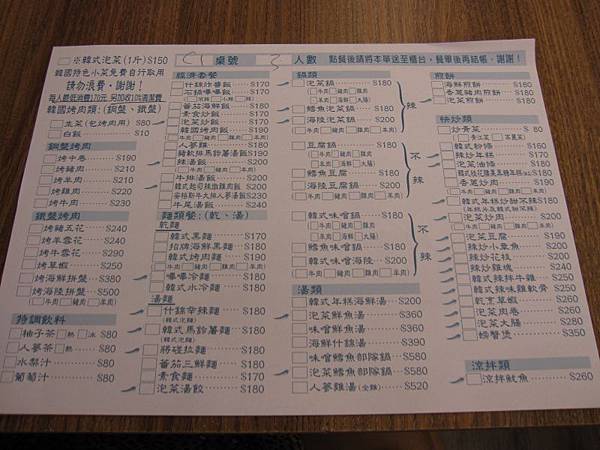 ※韓式泡菜(1斤)$150
韓國特色小菜免費自行取用
請勿浪費‧謝謝!
桌號
3
人數
點餐後請將本單送至櫃台,餐畢後再結帳,謝謝!
韓國烤肉類:(銅盤、鐵盤)
生菜(包烤肉用) $80
白飯 $10
銅盤烤肉
烤中卷 $190
烤豬肉 $210
烤羊肉 $210
烤雞肉 $220
烤牛肉 $230
鐵盤烤肉
烤豬五花 $240
烤羊雪花 $240
烤牛雪花 $290
烤草蝦 $250
烤海鮮拼盤 $380
烤海陸拼盤 $500
(牛肉 豬肉 羊肉)
特調飲料
柚子茶(熱 冰) $80
人蔘茶(熱) $80
水梨汁 $80
葡萄汁 $80
經濟套餐
什錦炒醬飯 $170
石鍋嗶嗶飯 $170
番茄海鮮飯 $180
素食炒飯 $170
泡菜炒飯 $170
韓國烤肉飯 $190
(牛肉 豬肉 雞肉 羊肉)
人蔘雞 $180
豬軟排馬鈴薯湯飯 $190
辣湯飯 $200
(牛肉 豬肉 羊肉)
牛排湯飯 $180
牛尾湯飯 $240
麵類餐:(乾、湯)
乾麵
韓式黑麵 $170
招牌海鮮黑麵 $180
韓式烤肉麵 $190
(牛肉 豬肉 雞肉 羊肉)
嗶嗶冷麵 $180
韓式水冷麵 $180
湯麵
什錦辛辣麵 $180
(韓式泡麵)
韓式馬鈴薯麵 $180
(韓式泡麵)
將碰拉麵 $180
番茄三鮮麵 $180
素食麵 $170
泡菜湯餃 $180
鍋類
泡菜鍋 $180
鱈魚泡菜鍋 $180
海陸泡菜鍋 $200
(牛肉 豬肉 雞肉 羊肉)
辣
豆腐鍋 $180
鱈魚豆腐鍋 $180
海陸豆腐鍋 $200
(牛肉 豬肉 雞肉 羊肉)
不辣
韓式味噌鍋 $180
鱈魚味噌鍋 $180
韓式味噌海陸 $200
(牛肉 豬肉 雞肉 羊肉)
不辣
湯類
韓式年糕海鮮湯 $200
泡菜鮮魚湯 $360
味噌鮮魚湯 $360
海鮮什錦湯 $390
味噌鱈魚部隊鍋 $580
泡菜鱈魚部隊鍋 $580
人蔘雞湯(全雞) $520
煎餅
海鮮煎餅 $180
香蔥豬肉煎餅 $180
泡菜煎餅 $180
快炒類
炒青菜 $80
韓式炒粉條 $160
辣炒年糕 $170
泡菜油條 $180
香蔥炒肉 $190
(牛肉 豬肉 雞肉 羊肉)
韓式年糕炒甜不辣 $180
泡菜炒肉 $200
(牛肉 豬肉 雞肉 羊肉)
泡菜豆腐 $190
辣炒小章魚 $200
辣炒花枝 $200
辣炒雞塊 $240
韓式辣拌牛雞 $250
韓式辣味雞軟骨 $250
乾烹草蝦 $260
泡菜肉卷 $260
泡菜大腸 $280
螃蟹煲 $350
涼拌類
涼拌魷魚 $260